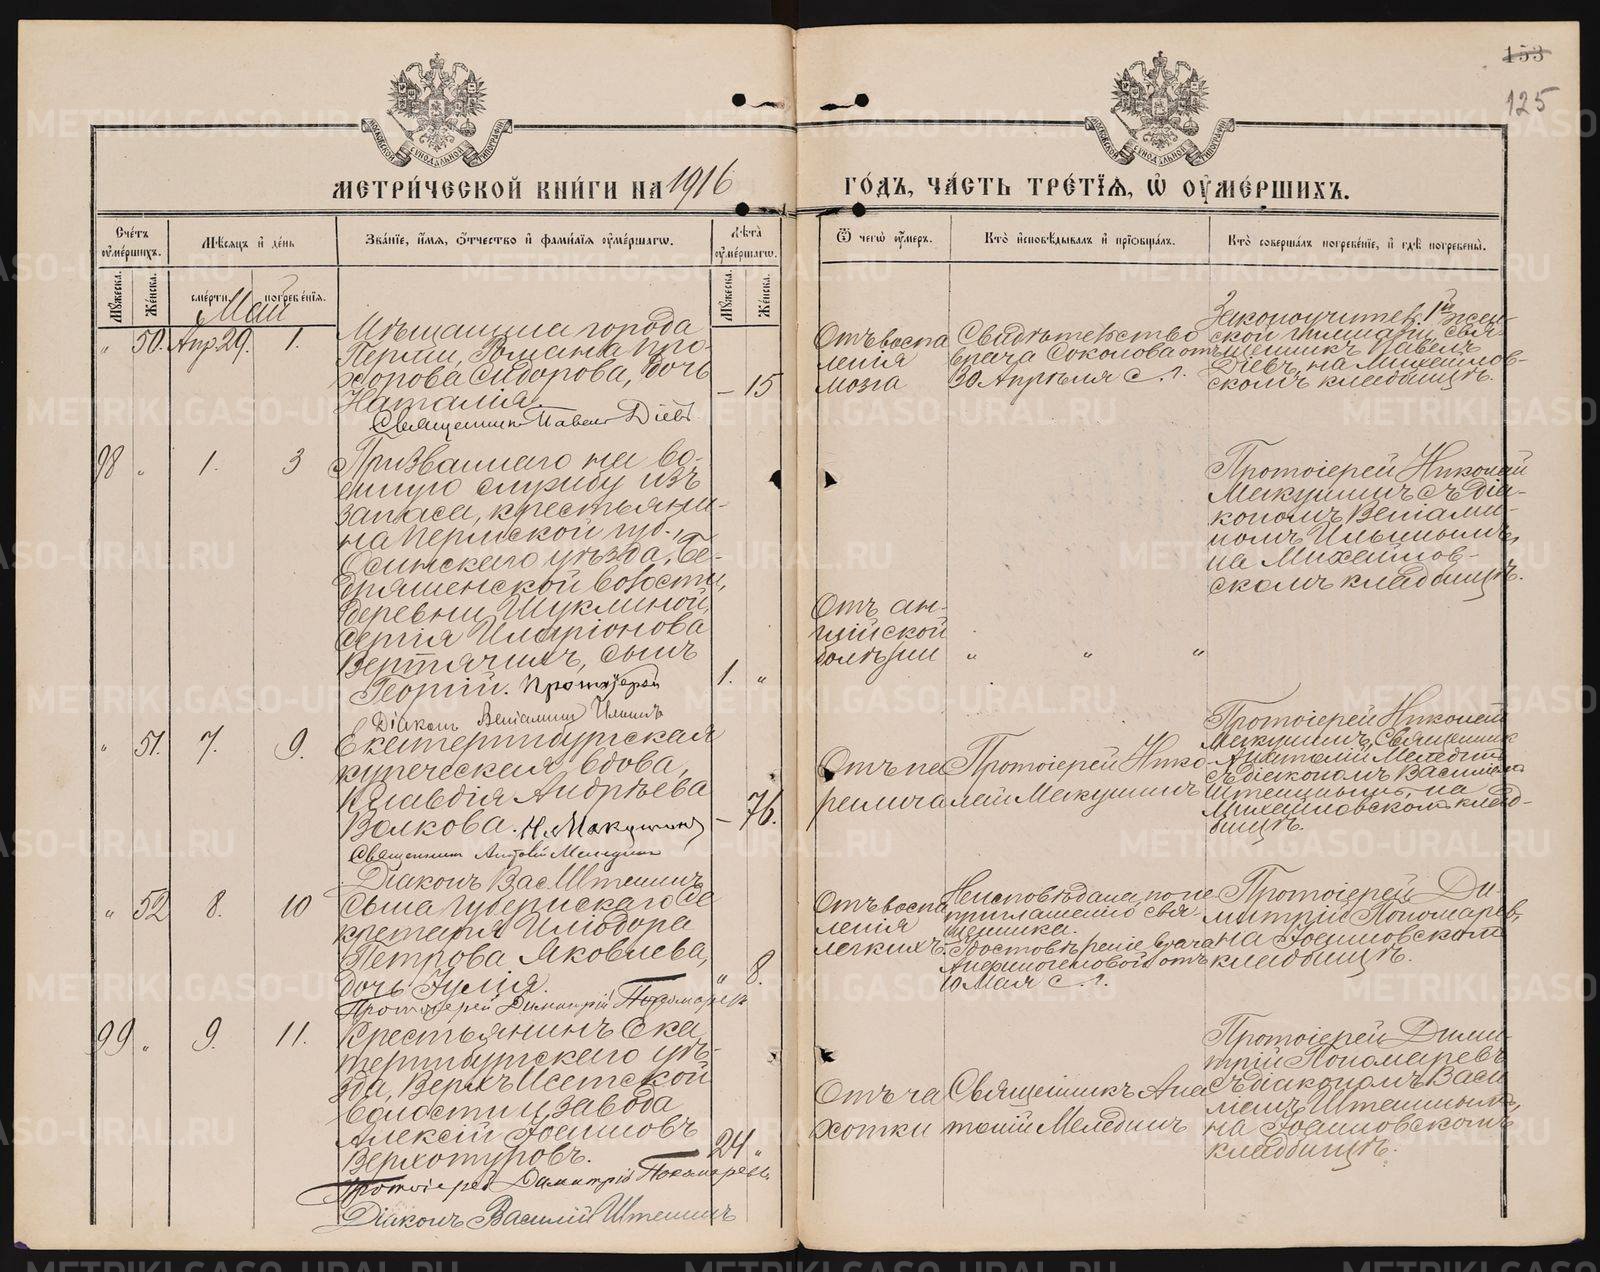 153
125
МОСКОВСКОЙ СѴНОДАЛЬНОЙ ТИПОГРАФІИ
МОСКОВСКОЙ СѴНОДАЛЬНОЙ ТИПОГРАФІИ
МЕТРИ́ЧЕСКОЙ КНИ́ГИ НА 1916
ГО́ДЪ, ЧА́СТЬ ТРЕ́ТЇѦ, Ѡ҆ ОУ҆МЕ́РШИХЪ.
Сче́тъ оу҆ме́ршихъ.
Мѣ́сяцъ и҆ де́нь
Зва́нїе, и҆́мѧ, ѻ҆́тчество и҆ фами́лїѧ оу҆ме́ршагѡ.
Лѣ́та оу҆ме́ршагѡ.
Ѿ чегѡ̀ оу҆́меръ.
Кто̀ и҆сповѣ́дывалъ и҆ прїѡбща́лъ.
Кто̀ соверша́лъ погребе́нїе, и҆ гдѣ̀ погребены̀.
Мꙋ́жеска.
Же́нска.
сме́рти
погребе́нїѧ.
Мꙋ́жеска.
Же́нска.
Май
„ 50. Апр. 29. 1.
Мѣщанина города
Перми, Романа Про-
хорова Сидорова, дочь
Наталія.
Священникъ Павелъ Діевъ
– 15
Отъ воспа
ленія
мозга
Свидѣтельство
врача Соколова отъ
30 Апрѣля с. г.
Законоучитель 1й жен-
ской гимназіи, свя-
щенникъ Павелъ
Діевъ, на Михайлов-
скомъ кладбищѣ.
98 „ 1. 3
Призваннаго на во-
енную службу изъ
запаса, крестьяни-
на Пермской губ.,
Осинскаго уѣзда, Бе-
дряшенской волости,
деревни Шуклиной
Сергія Иларіонова
Вертячихъ, сынъ
Георгій. Протоіерей
Діаконъ Веніаминъ Ильинъ
1. „
Отъ ан-
глійской
болѣзни
„ „ „
Протоіерей Николай
Макушинъ съ діа-
кономъ Веніами-
номъ Ильинымъ,
на Михайлов-
скомъ кладбищѣ.
„ 51. 7. 9.
Екатеринбургская
купеческая вдова,
Клавдія Андрѣева
Волкова. Н. Макушинъ
Священникъ Анатолій Мелединъ
Діаконъ Вас. Штешинъ
– 76.
Отъ па
ралича
Протоіерей Нико-
лай Макушинъ
Протоіерей Николай
Макушинъ, Священник
Анатолій Меледин
съ діакономъ Василіем
Штешинымъ, на
Михайловскомъ клад-
бищѣ.
„ 52 8. 10
Сына губернскаго Се
кретаря Иліодора
Петрова Яковлева,
дочь Юлія.
Протоіерей Димитрій Пономаревъ
„ 8.
Отъ воспа
ленія
легкихъ.
Неисповѣдана, по не
приглашенію свя-
щенника.
Удостовѣреніе врача
Анфиногеновой отъ
10 Мая с. г.
Протоіерей Ди-
митрій Пономаревъ,
на Іоанновском
кладбищѣ.
99 „ 9. 11.
Крестьянинъ Ека
теринбургскаго уѣ-
зда, Верхъ-Исетской
волости и завода
Алексій Іоанновъ
Верхотуровъ.
Протоіерей Димитрій Пономаревъ
Діаконъ Василій Штешинъ
24 „
Отъ ча
хотки
Священникъ Ана
толій Меледин
Протоіерей Дими-
трій Пономаревъ
съ діакономъ Васи
ліемъ Штешинымъ,
на Іоанновскомъ
кладбищѣ.
METRIKI.GASO-URAL.RU